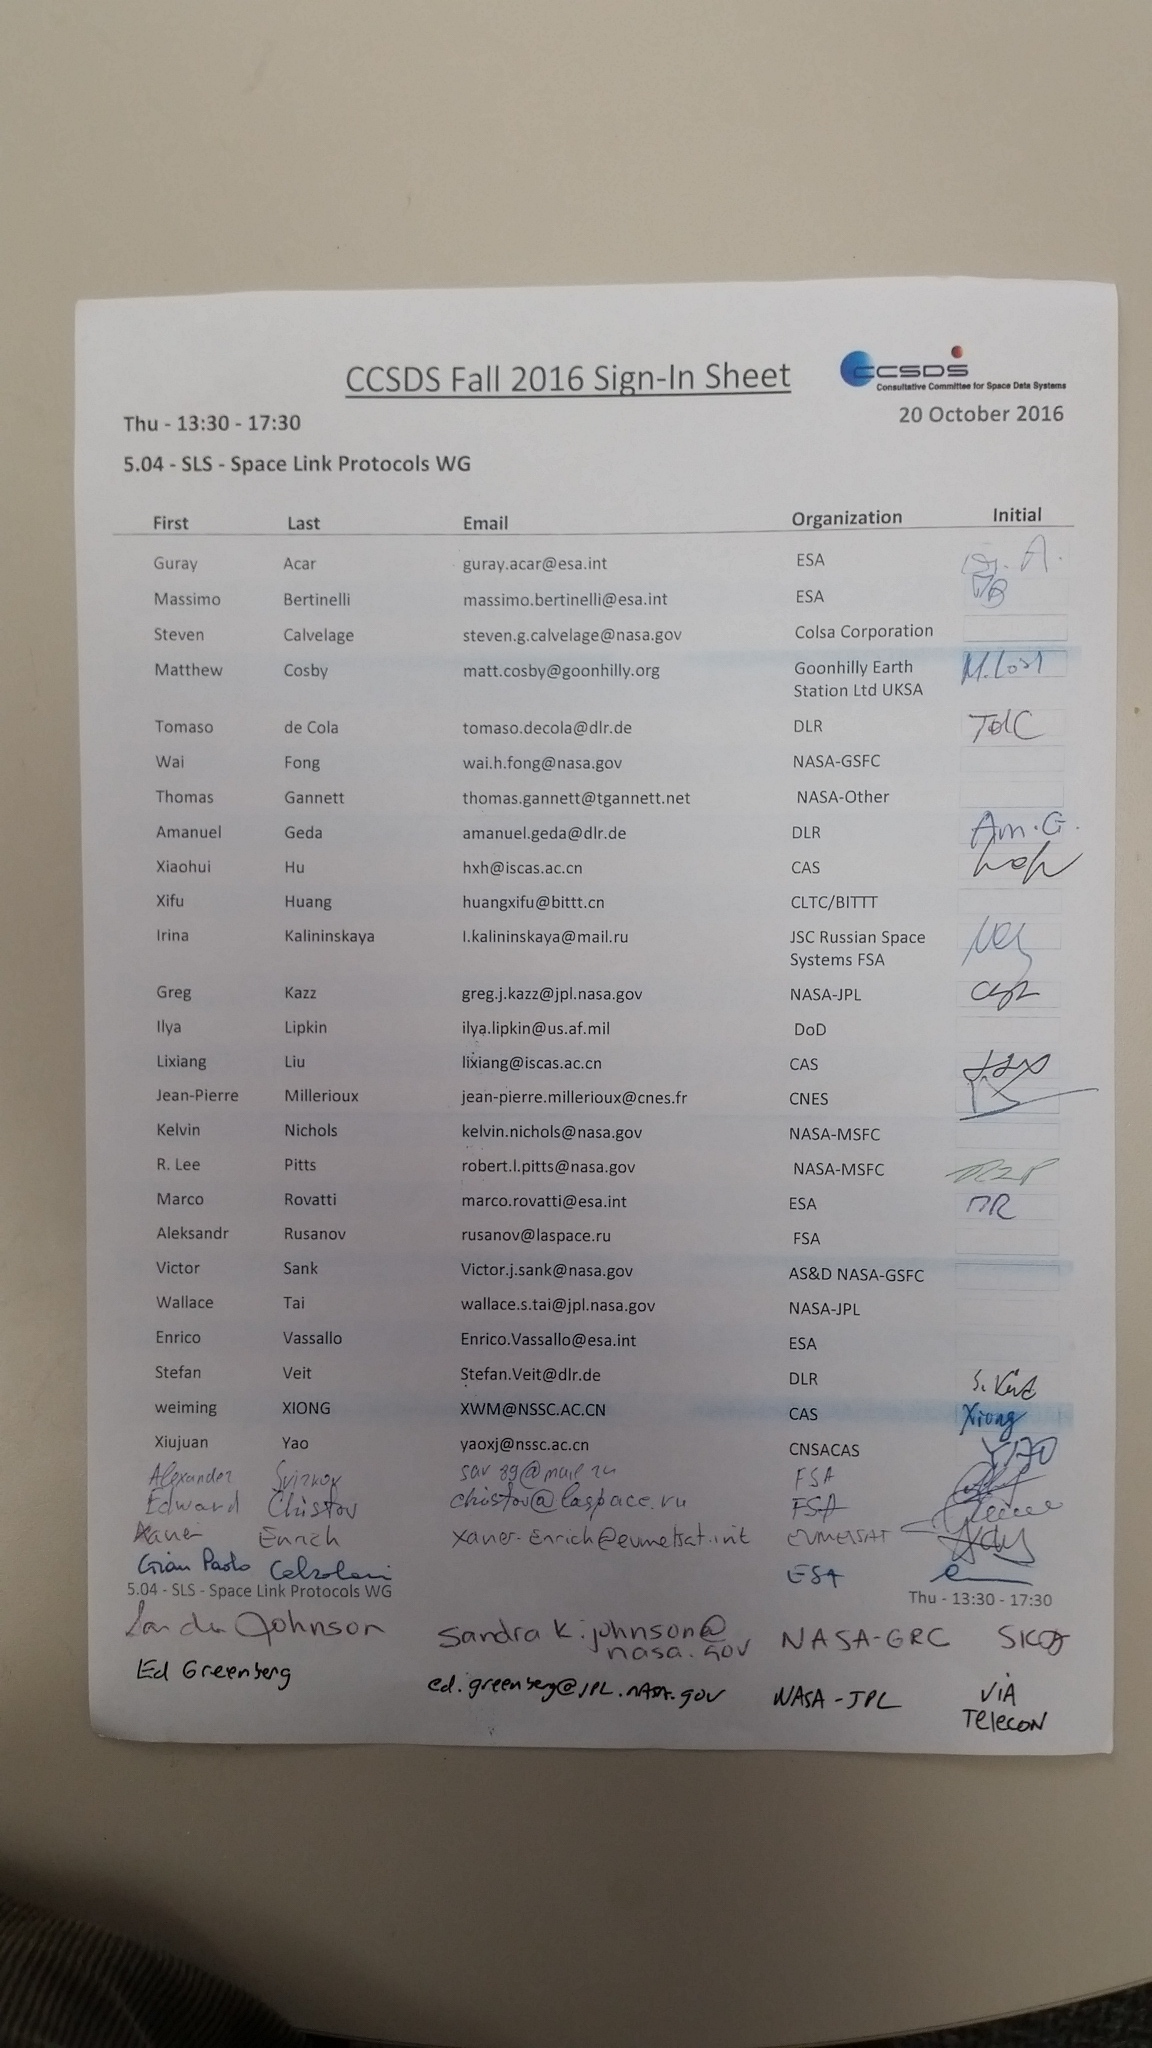 CCSDS Fall 2016 Sign-In Sheet
CCSDS
Consultative Committee for Space Data Systems
Thu - 13:30 - 17:30 20 October 2016
5.04 - SLS - Space Link Protocols WG
First Last Email Organization Initial
Guray Acar guray.acar@esa.int ESA G. A.
Massimo Bertinelli massimo.bertinelli@esa.int ESA MB
Steven Calvelage steven.g.calvelage@nasa.gov Colsa Corporation
Matthew Cosby matt.cosby@goonhilly.org Goonhilly Earth
Station Ltd UKSA
Tomaso de Cola tomaso.decola@dlr.de DLR TdC
Wai Fong wai.h.fong@nasa.gov NASA-GSFC
Thomas Gannett thomas.gannett@tgannett.net NASA-Other
Amanuel Geda amanuel.geda@dlr.de DLR Am.G.
Xiaohui Hu hxh@iscas.ac.cn CAS
Xifu Huang huangxifu@bittt.cn CLTC/BITTT
Irina Kalininskaya I.kalininskaya@mail.ru JSC Russian Space
Systems FSA
Greg Kazz greg.j.kazz@jpl.nasa.gov NASA-JPL
Ilya Lipkin ilya.lipkin@us.af.mil DoD
Lixiang Liu lixiang@iscas.ac.cn CAS
Jean-Pierre Millerioux jean-pierre.millerioux@cnes.fr CNES
Kelvin Nichols kelvin.nichols@nasa.gov NASA-MSFC
R. Lee Pitts robert.l.pitts@nasa.gov NASA-MSFC RLP
Marco Rovatti marco.rovatti@esa.int ESA MR
Aleksandr Rusanov rusanov@laspace.ru FSA
Victor Sank Victor.j.sank@nasa.gov AS&D NASA-GSFC
Wallace Tai wallace.s.tai@jpl.nasa.gov NASA-JPL
Enrico Vassallo Enrico.Vassallo@esa.int ESA
Stefan Veit Stefan.Veit@dlr.de DLR S. Veit
weiming XIONG XWM@NSSC.AC.CN CAS Xiong
Xiujuan Yao yaoxj@nssc.ac.cn CNSACAS YAO
Alexander FSA
Edward Chistov chistov@laspace.ru FSA
Xaver Enrich xaver.enrich@eumetsat.int EUMETSAT
Gian Paolo Calzolari ESA
5.04 - SLS - Space Link Protocols WG Thu - 13:30 - 17:30
Sandra Johnson sandra.k.johnson@
nasa.gov NASA-GRC SKJ
Ed Greenberg ed.greenberg@JPL.NASA.gov NASA-JPL VIA
TELECON